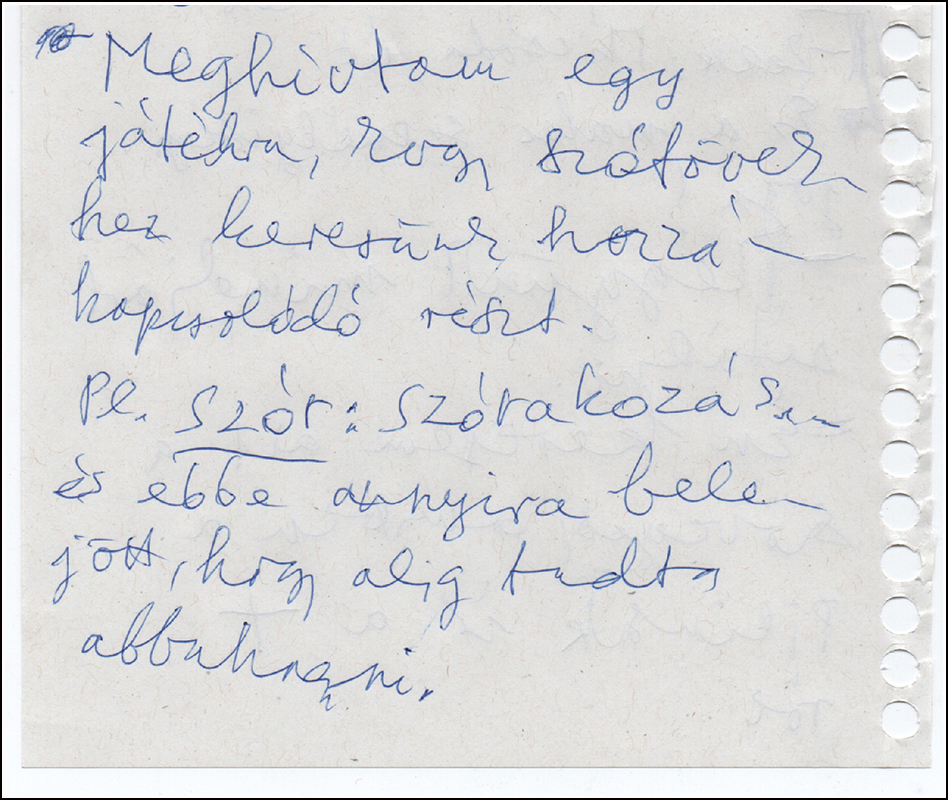 Meghívtam egy
játékra, hogy szótövek-
hez keresünk hozzá-
kapcsolódó részt.
Pl. szór: szórakozás...
és ebbe annyira bele-
jött, hogy alig tudta
abbahagyni.